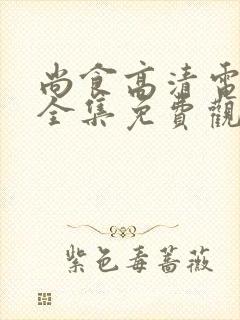 尚食高清電
全集免費觀
紫色毒薔薇